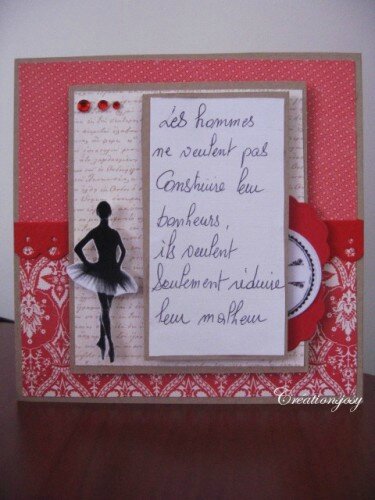 Les hommes
ne veulent pas
Construire leur
bonheurs,
ils veulent
Seulement réduire
leur malheur
Creationjosy